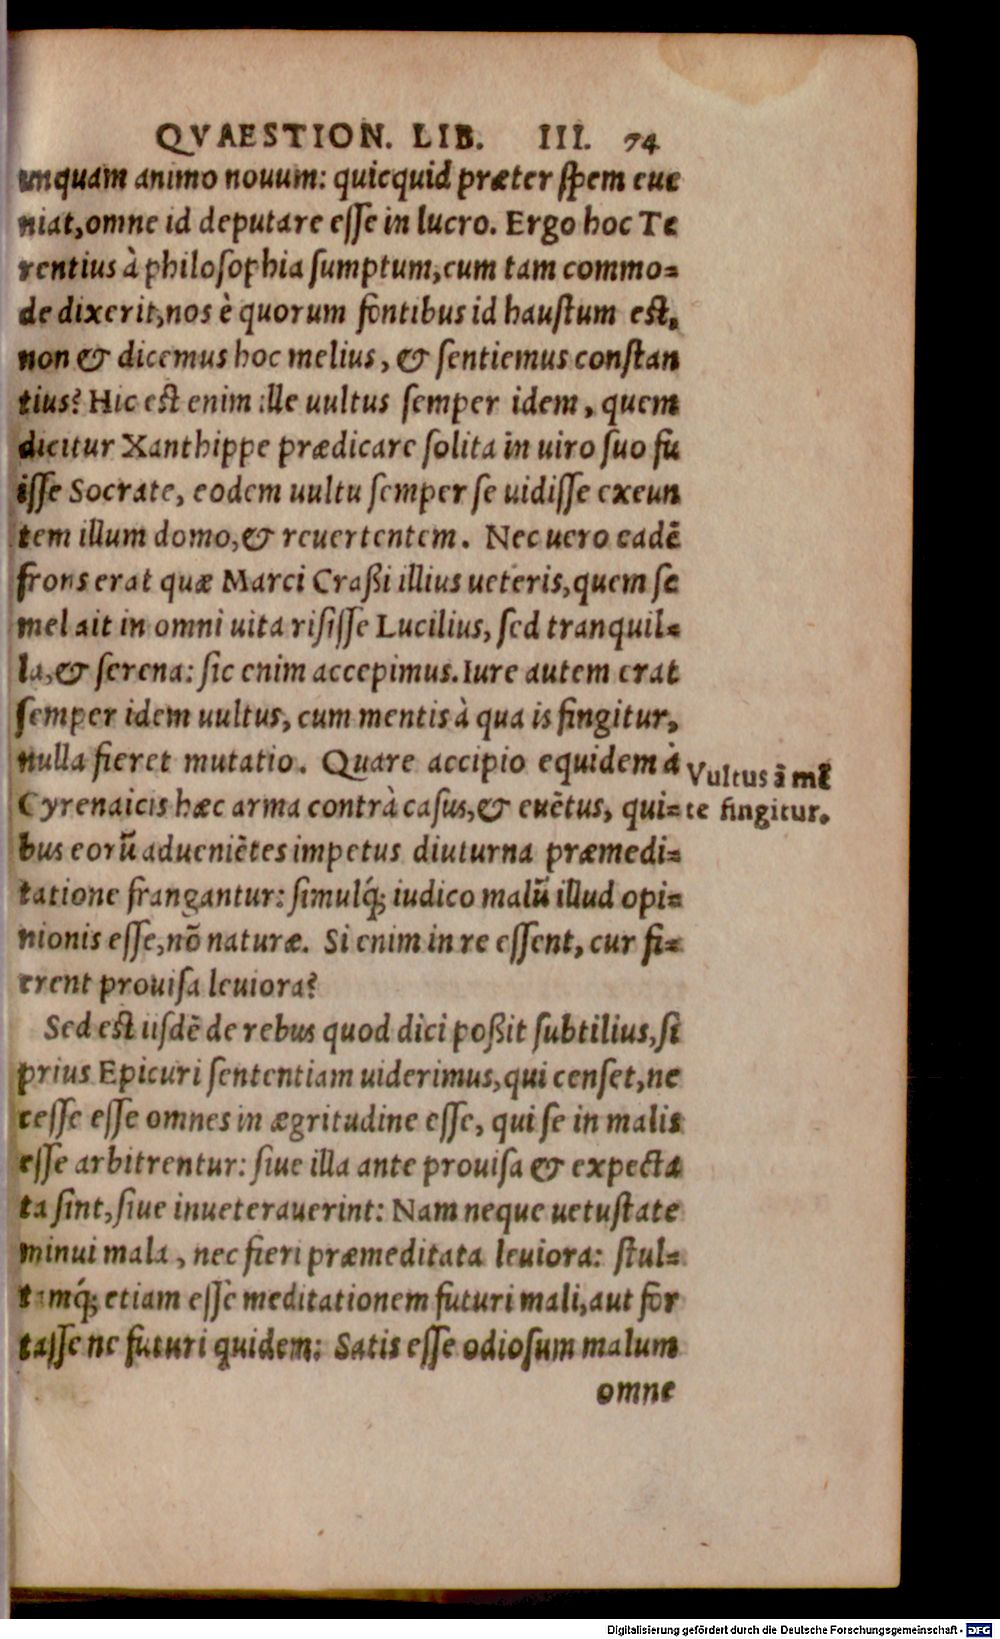 QVAESTION. LIB. III. 74
unquam animo nouum: quicquid præter spem eue
niat, omne id deputare esse in lucro. Ergo hoc Te
rentius à philosophia sumptum, cum tam commo=
de dixerit, nos è quorum fontibus id haustum est,
non & dicemus hoc melius, & sentiemus constan
tius? Hic est enim ille uultus semper idem, quem
dicitur Xanthippe prædicare solita in uiro suo fu
isse Socrate, eodem uultu semper se uidisse exeun
tem illum domo, & reuertentem. Nec uero eadē
frons erat quæ Marci Craßi illius ueteris, quem se
mel ait in omni uita risisse Lucilius, sed tranquil=
la, & serena: sic enim accepimus. Iure autem erat
semper idem uultus, cum mentis à qua is fingitur,
nulla fieret mutatio. Quare accipio equidem à
Vultus ā mē
Cyrenaicis hæc arma contrà casus, & euētus, qui=
te fingitur.
bus eorū adueniētes impetus diuturna præmedi=
tatione frangantur: simulq́; iudico malū illud opi=
nionis esse, nō naturæ. Si enim in re essent, cur fi=
erent prouisa leuiora?
Sed est iisdē de rebus quod dici poßit subtilius, si
prius Epicuri sententiam uiderimus, qui censet, ne
cesse esse omnes in ægritudine esse, qui se in malis
esse arbitrentur: siue illa ante prouisa & expecta
ta sint, siue inueterauerint: Nam neque uetustate
minui mala, nec fieri præmeditata leuiora: stul=
tamq́; etiam esse meditationem futuri mali, aut for
tasse ne futuri quidem: Satis esse odiosum malum
omne
Digitalisierung gefördert durch die Deutsche Forschungsgemeinschaft - DFG